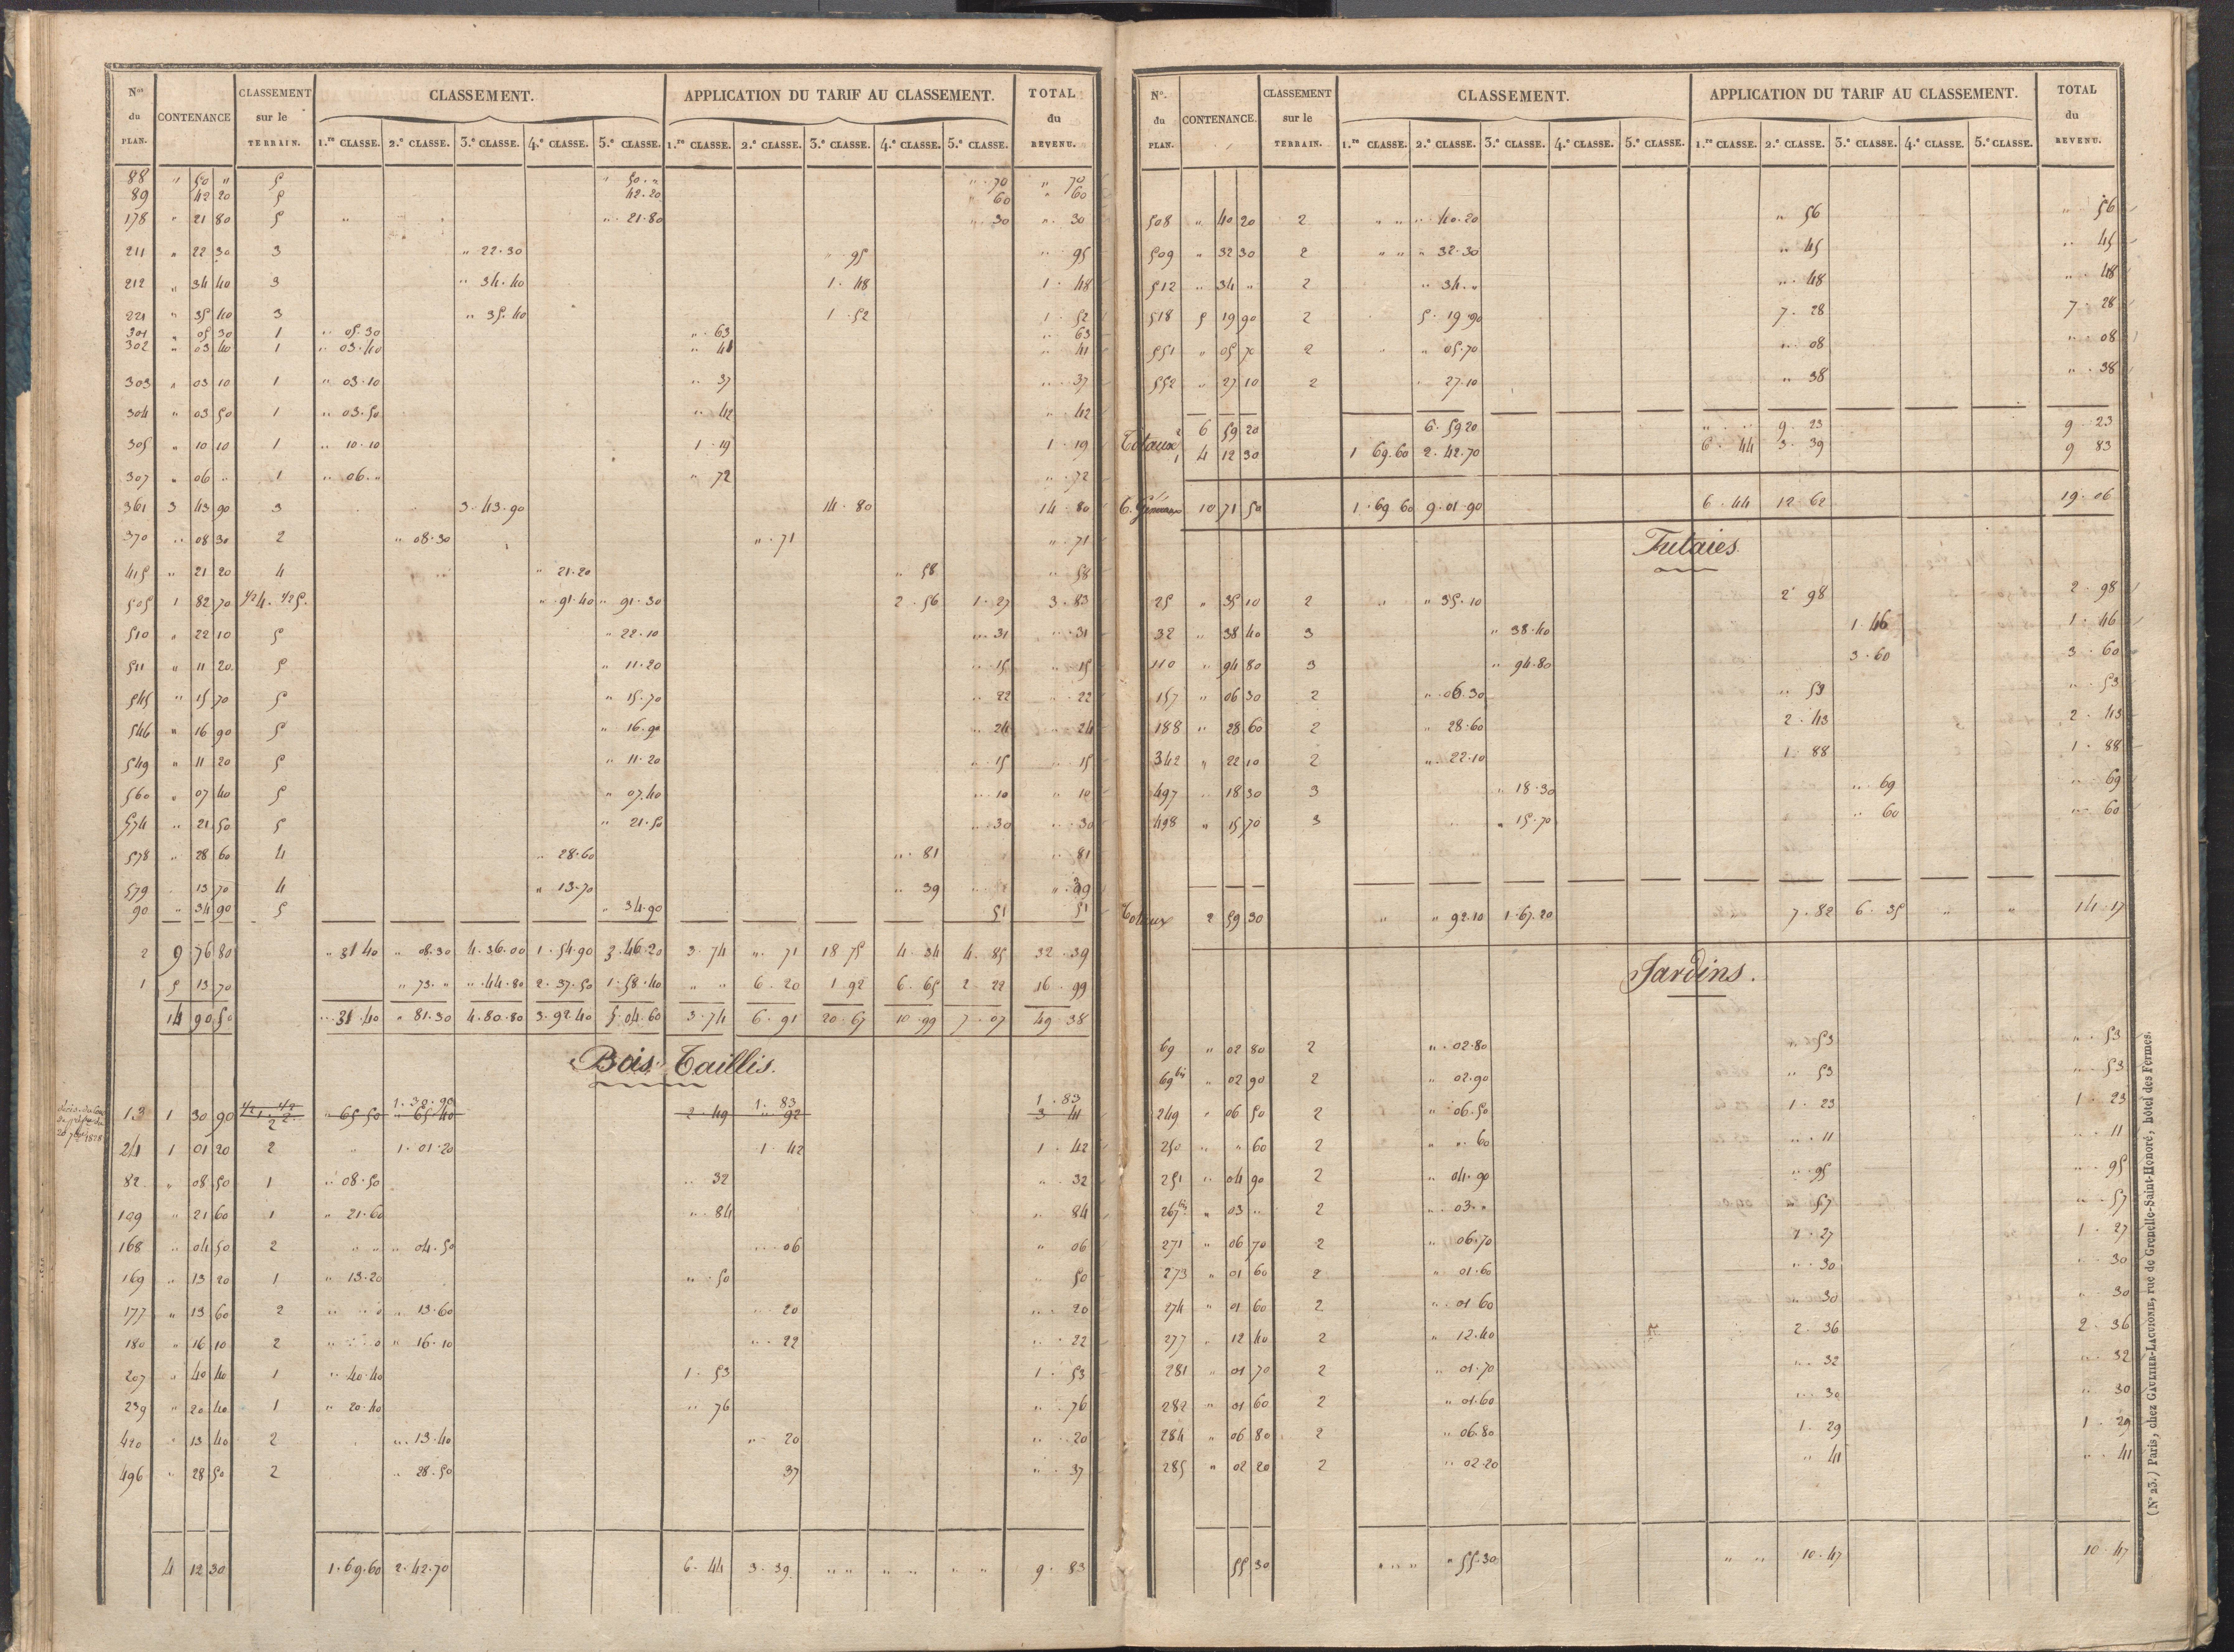 Nos du PLAN. CONTENANCE CLASSEMENT sur le TERRAIN. CLASSEMENT. APPLICATION DU TARIF AU CLASSEMENT. TOTAL du REVENU.
1.re CLASSE. 2.e CLASSE. 3.e CLASSE. 4.e CLASSE. 5.e CLASSE. 1.re CLASSE. 2.e CLASSE. 3.e CLASSE. 4.e CLASSE. 5.e CLASSE.
88 " 50 " 5 " 50 . " " . 70 " 70
89 42 20 5 42 . 20 " 60 " 60
178 " 21 80 5 " " . 21 . 80 " . 30 " . 30
211 " 22 30 3 " 22 . 30 " 95 " . 95
212 " 34 40 3 " 34 . 40 1 . 48 1 . 48
221 " 35 40 3 " 35 . 40 1 . 52 1 . 52
301 " 05 30 1 " 05 . 30 " . 63 " 63
302 " 03 40 1 " 03 . 40 " . 41 " . 41
303 " 03 10 1 " 03 . 10 " . 37 " . 37
304 " 03 50 1 " 03 . 50 " . 42 " . 42
305 " 10 10 1 " 10 . 10 1 . 19 1 . 19
307 " 06 " 1 " 06 . " " . 72 " . 72
361 3 43 90 3 3 . 43 . 90 14 . 80 14 . 80
370 " 08 30 2 " 08 . 30 " . 71 " . 71
415 " 21 20 4 " 21 . 20 " 58 " 58
505 1 82 70 1/2 4. 1/2 5. " . 91 . 40 " 91 . 30 2 . 56 1 . 27 3 . 83
510 " 22 10 5 " 22 . 10 " . 31 " . 31
511 " 11 20 5 " 11 . 20 " . 15 " . 15
545 " 15 70 5 " 15 . 70 " 22 " . 22
546 " 16 90 5 " 16 . 90 " 24 " . 24
549 " 11 20 5 " 11 . 20 " . 15 " . 15
560 " 07 40 5 " 07 . 40 " . 10 " . 10
574 " 21 50 5 " 21 . 50 " . 30 " . 30
578 " 28 60 4 " 28 . 60 " . 81 " . 81
579 13 70 4 " 13 . 70 " 39 " . 39
90 " 34 90 5 " 34 . 90 51 51
2 9 76 80 " 31 40 " 08 . 30 4 . 36 . 00 1 . 54 . 90 3 . 46 . 20 3 . 74 " . 71 18 75 4 . 34 4 . 85 32 . 39
1 5 13 70 " 73 . " " . 44 . 80 2 . 37 . 50 1 . 58 . 40 " " 6 . 20 1 92 6 . 65 2 . 22 16 . 99
14 90 50 " . 31 . 40 " 81 . 30 4 . 80 . 80 3 . 92 40 5 . 04 . 60 3 . 74 6 . 91 20 . 67 10 . 99 7 . 07 49 . 38
Bois Taillis.
1 . 30 . 90 1 . 83 1 . 83
13 1 30 90 1/2 1. 1/2 2. " 65 50 " 65 40 2 . 49 " 92 3 41
2
24 1 01 20 2 " 1 . 01 . 20 1 . 42 1 . 42
82 " 08 50 1 " 08 . 50 " 32 " . 32
109 " 21 60 1 " 21 . 60 " . 84 " 84
168 " 04 50 2 " " " 04 . 50 " . 06 " 06
169 " 13 20 1 " 13 . 20 " . 50 " 50
177 " 13 60 2 " " 13 . 60 " 20 " . 20
180 " 16 10 2 " " 16 . 10 " . 22 " . 22
207 " 40 40 1 " 40 . 40 1 . 53 1 . 53
239 " 20 40 1 " 20 . 40 " 76 " . 76
420 " 13 40 2 " . 13 . 40 " . 20 " . 20
496 " 28 50 2 " 28 . 50 37 " . 37
4 12 30 1 . 69 . 60 2 . 42 . 70 6 . 44 3 . 39 " " " " " " 9 . 83
No. du PLAN. CONTENANCE. CLASSEMENT sur le TERRAIN. CLASSEMENT. APPLICATION DU TARIF AU CLASSEMENT. TOTAL du REVENU.
1.re CLASSE. 2.e CLASSE. 3.e CLASSE. 4.e CLASSE. 5.e CLASSE. 1.re CLASSE. 2.e CLASSE. 3.e CLASSE. 4.e CLASSE. 5.e CLASSE.
508 " 40 20 2 " " " . 40 . 20 " 56 " . 56
509 " 32 30 2 " " " 32 . 30 " . 45 " . 45
512 " 34 " 2 " 34 . " " . 48 " . 48
518 5 19 90 2 5 . 19 . 90 7 . 28 7 . 28
551 " 05 70 2 " " 05 . 70 " . 08 " . 08
552 " 27 10 2 " 27 . 10 " 38 " . 38
Totaux 2 6 59 20 6 . 59 20 " " 9 . 23 9 . 23
1 4 12 30 1 69 . 60 2 . 42 . 70 6 . 44 3 . 39 9 83
T. Généraux 10 71 50 1 . 69 60 9 . 01 . 90 6 . 44 12 . 62 19 . 06
Futaies.
25 " 35 10 2 " " 35 . 10 2 98 2 . 98
32 " 38 40 3 " 38 . 40 1 . 46 1 . 46
110 " 94 80 3 " 94 . 80 3 . 60 3 . 60
157 " 06 30 2 " . 06 . 30 " 53 " . 53
188 " 28 60 2 " 28 . 60 2 . 43 2 . 43
342 " 22 10 2 " . 22 . 10 1 . 88 1 . 88
497 " 18 30 3 " 18 . 30 " . 69 " . 69
498 " 15 70 3 " 15 . 70 " 60 " . 60
Totaux 2 59 30 " " 92 . 10 1 . 67 . 20 7 . 82 6 . 35 " " 14 . 17
Jardins.
69 " 02 80 2 " . 02 . 80 " . 53 " . 53
69 bis " 02 90 2 " 02 . 90 " 53 " . 53
249 " 06 50 2 " 06 . 50 1 . 23 1 . 23
250 " " 60 2 " " . 60 " . 11 " . 11
251 " 04 90 2 " 04 . 90 " . 95 " . 95
267 bis " 03 " 2 " . 03 . " " 57 " . 57
271 " 06 70 2 " 06 . 70 1 . 27 1 . 27
273 " 01 60 2 " 01 . 60 " . 30 " . 30
274 " 01 60 2 " . 01 60 " . 30 " . 30
277 " 12 40 2 " 12 . 40 2 . 36 2 . 36
281 " 01 70 2 " 01 . 70 " . 32 " . 32
282 " 01 60 2 " 01 . 60 " . 30 " 30
284 " 06 80 2 " 06 . 80 1 . 29 1 . 29
285 " 02 20 2 " 02 . 20 " 41 " . 41
55 30 " " " " 55 . 30 " " 10 . 47 10 . 47
(No 23.) Paris, chez GAULTIER-LAGUIONIE, rue de Grenelle-Saint-Honoré, hôtel des Fermes.